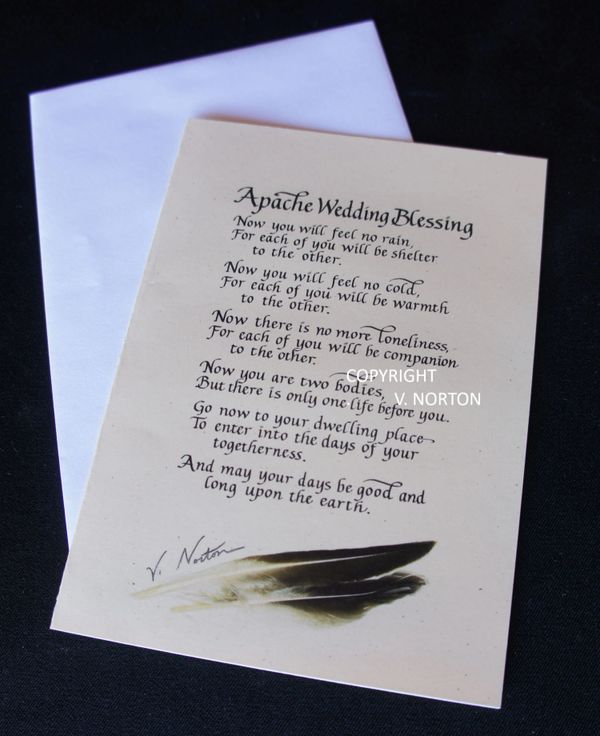 Apache Wedding Blessing
Now you will feel no rain,
For each of you will be shelter
to the other.
Now you will feel no cold,
For each of you will be warmth
to the other.
Now there is no more loneliness,
For each of you will be companion
to the other.
Now you are two bodies,
But there is only one life before you.
Go now to your dwelling place
To enter into the days of your
togetherness.
And may your days be good and
long upon the earth.
V. Norton
COPYRIGHT
V. NORTON